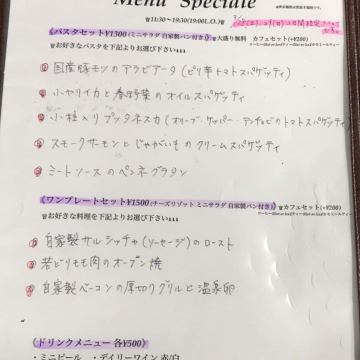 Menu Speciale
11:30～19:30(19:00L.O.)
パスタセット¥1300(ミニサラダ 自家製パン付き) 大盛り無料 カフェセット(+¥200)
お好きなパスタを下記よりお選び下さい↓↓↓
① 国産豚モツのアラビアータ(ピリ辛トマトスパゲッティ)
② 小ヤリイカと春野菜のオイルスパゲッティ
③ 小柱入りプッタネスカ(オリーブ・ケッパー・アンチョビのトマトスパゲッティ)
④ スモークサーモンとじゃがいものクリームスパゲッティ
⑤ ミートソースのペンネグラタン
ワンプレートセット¥1500(チーズリゾット ミニサラダ 自家製パン付き) カフェセット(+¥200)
お好きな料理を下記よりお選び下さい↓↓↓
自家製サルシッチャ(ソーセージ)のロースト
若どりモモ肉のオーブン焼
自家製ベーコンの厚切りグリルと温泉卵
《ドリンクメニュー 各¥500》
・ミニビール ・デイリーワイン 赤/白